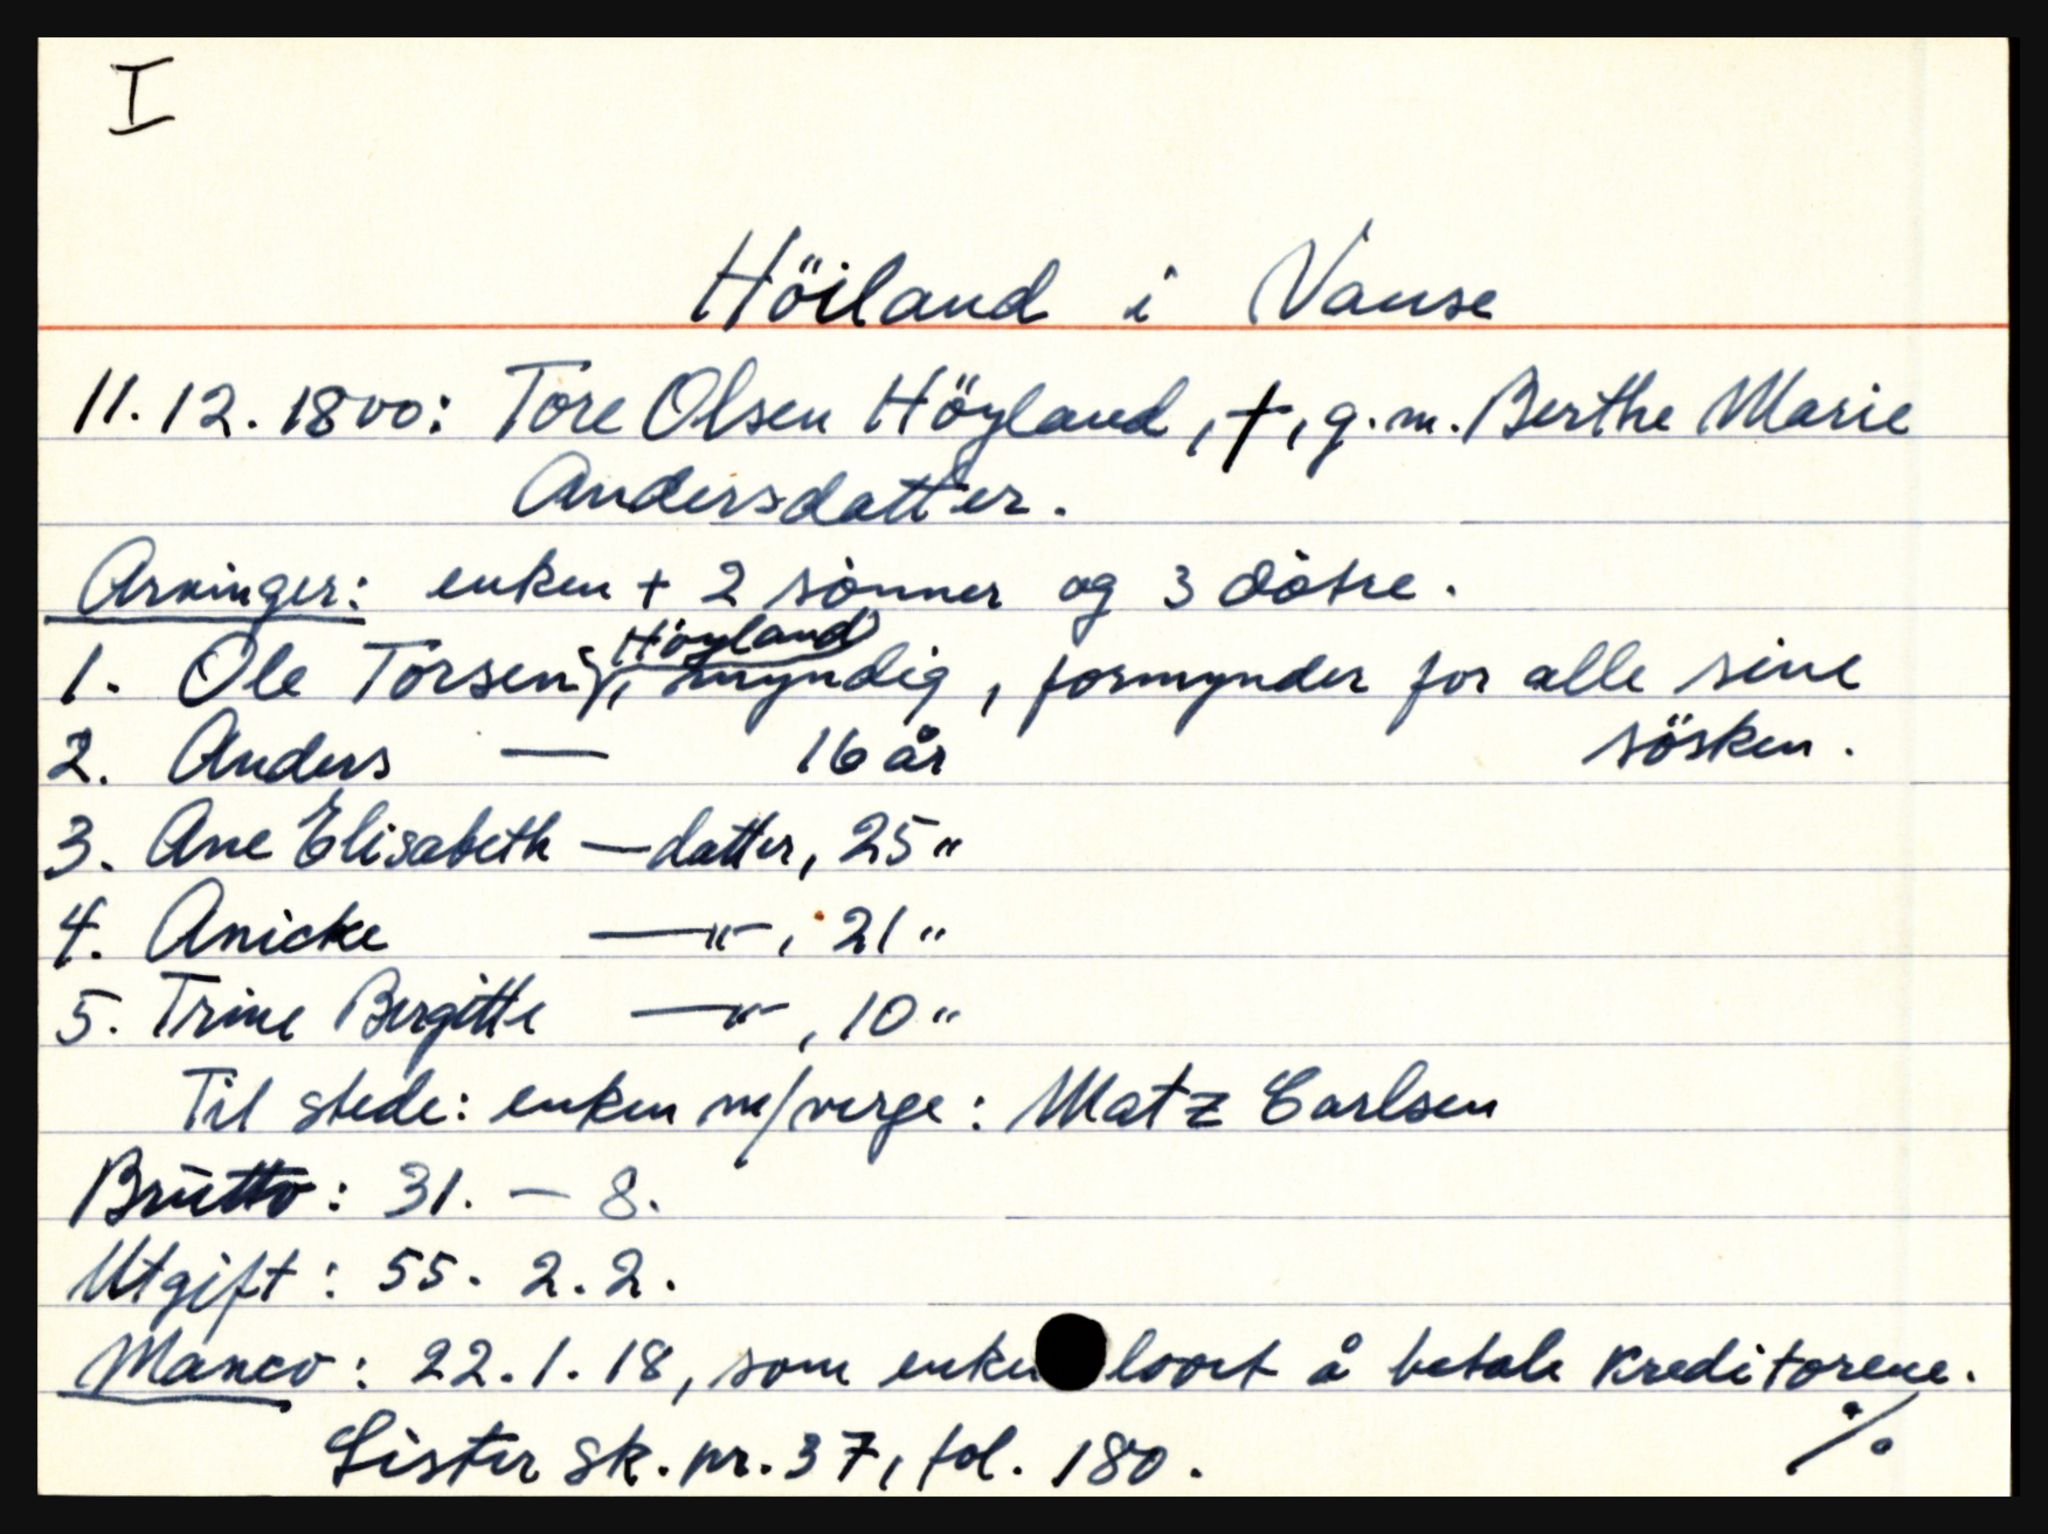 I
Höiland i Vanse
11.12.1800: Tore Olsen Höyland, †, g.m. Berthe Marie
Andersdatter.
Arvinger: enken + 2 sönner og 3 dötre.
1. Ole Torsen Höyland, myndig, formynder for alle sine
2. Anders — 16 år søsken.
3. Ane Elisabeth — datter, 25 "
4. Anicke —"—, 21 "
5. Trine Bergitte —"—, 10 "
Til stede: enken m/verge: Matz Carlsen
Brutto: 31. – 8.
Utgift: 55. 2. 2.
Manco: 22. 1. 18, som enken å betale kreditorene.
Lister sk. nr. 37, fol. 180.
%